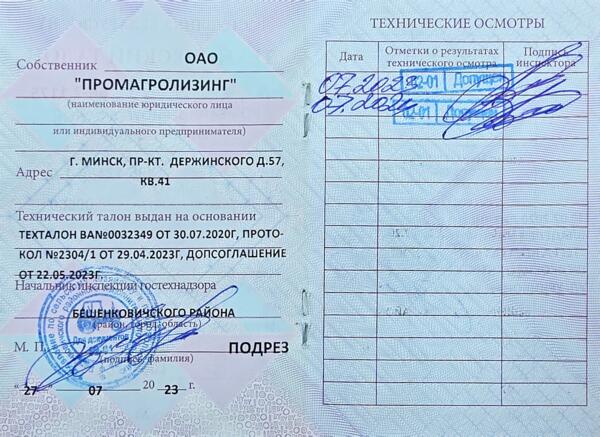 Собственник ОАО
"ПРОМАГРОЛИЗИНГ"
(наименование юридического лица
или индивидуального предпринимателя)
Адрес Г. МИНСК, ПР-КТ. ДЕРЖИНСКОГО Д.57,
КВ.41
Технический талон выдан на основании
ТЕХТАЛОН ВА№0032349 ОТ 30.07.2020Г, ПРОТО-
КОЛ №2304/1 ОТ 29.04.2023Г, ДОПСОГЛАШЕНИЕ
ОТ 22.05.2023Г.
Начальник инспекции гостехнадзора
БЕШЕНКОВИЧСКОГО РАЙОНА
(район, город, область)
М. П. ПОДРЕЗ
(подпись, фамилия)
"27 07 2023 г.
ТЕХНИЧЕСКИЕ ОСМОТРЫ
Дата Отметки о результатах технического осмотра Подпись инспектора
07.2023 02-01 Допущ
07.2024 02-01 Допущ